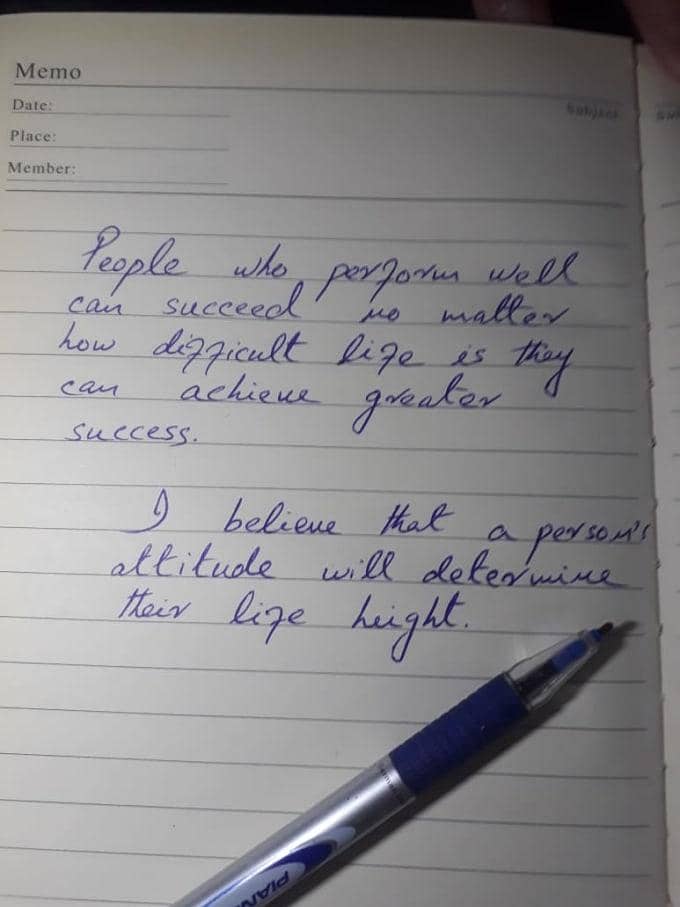 Memo
Date:
Subject
Place:
Member:
People who perform well
can succeed no matter
how difficult life is they
can achieve greater
success.
I believe that a person's
attitude will determine
their life height.
PIANO